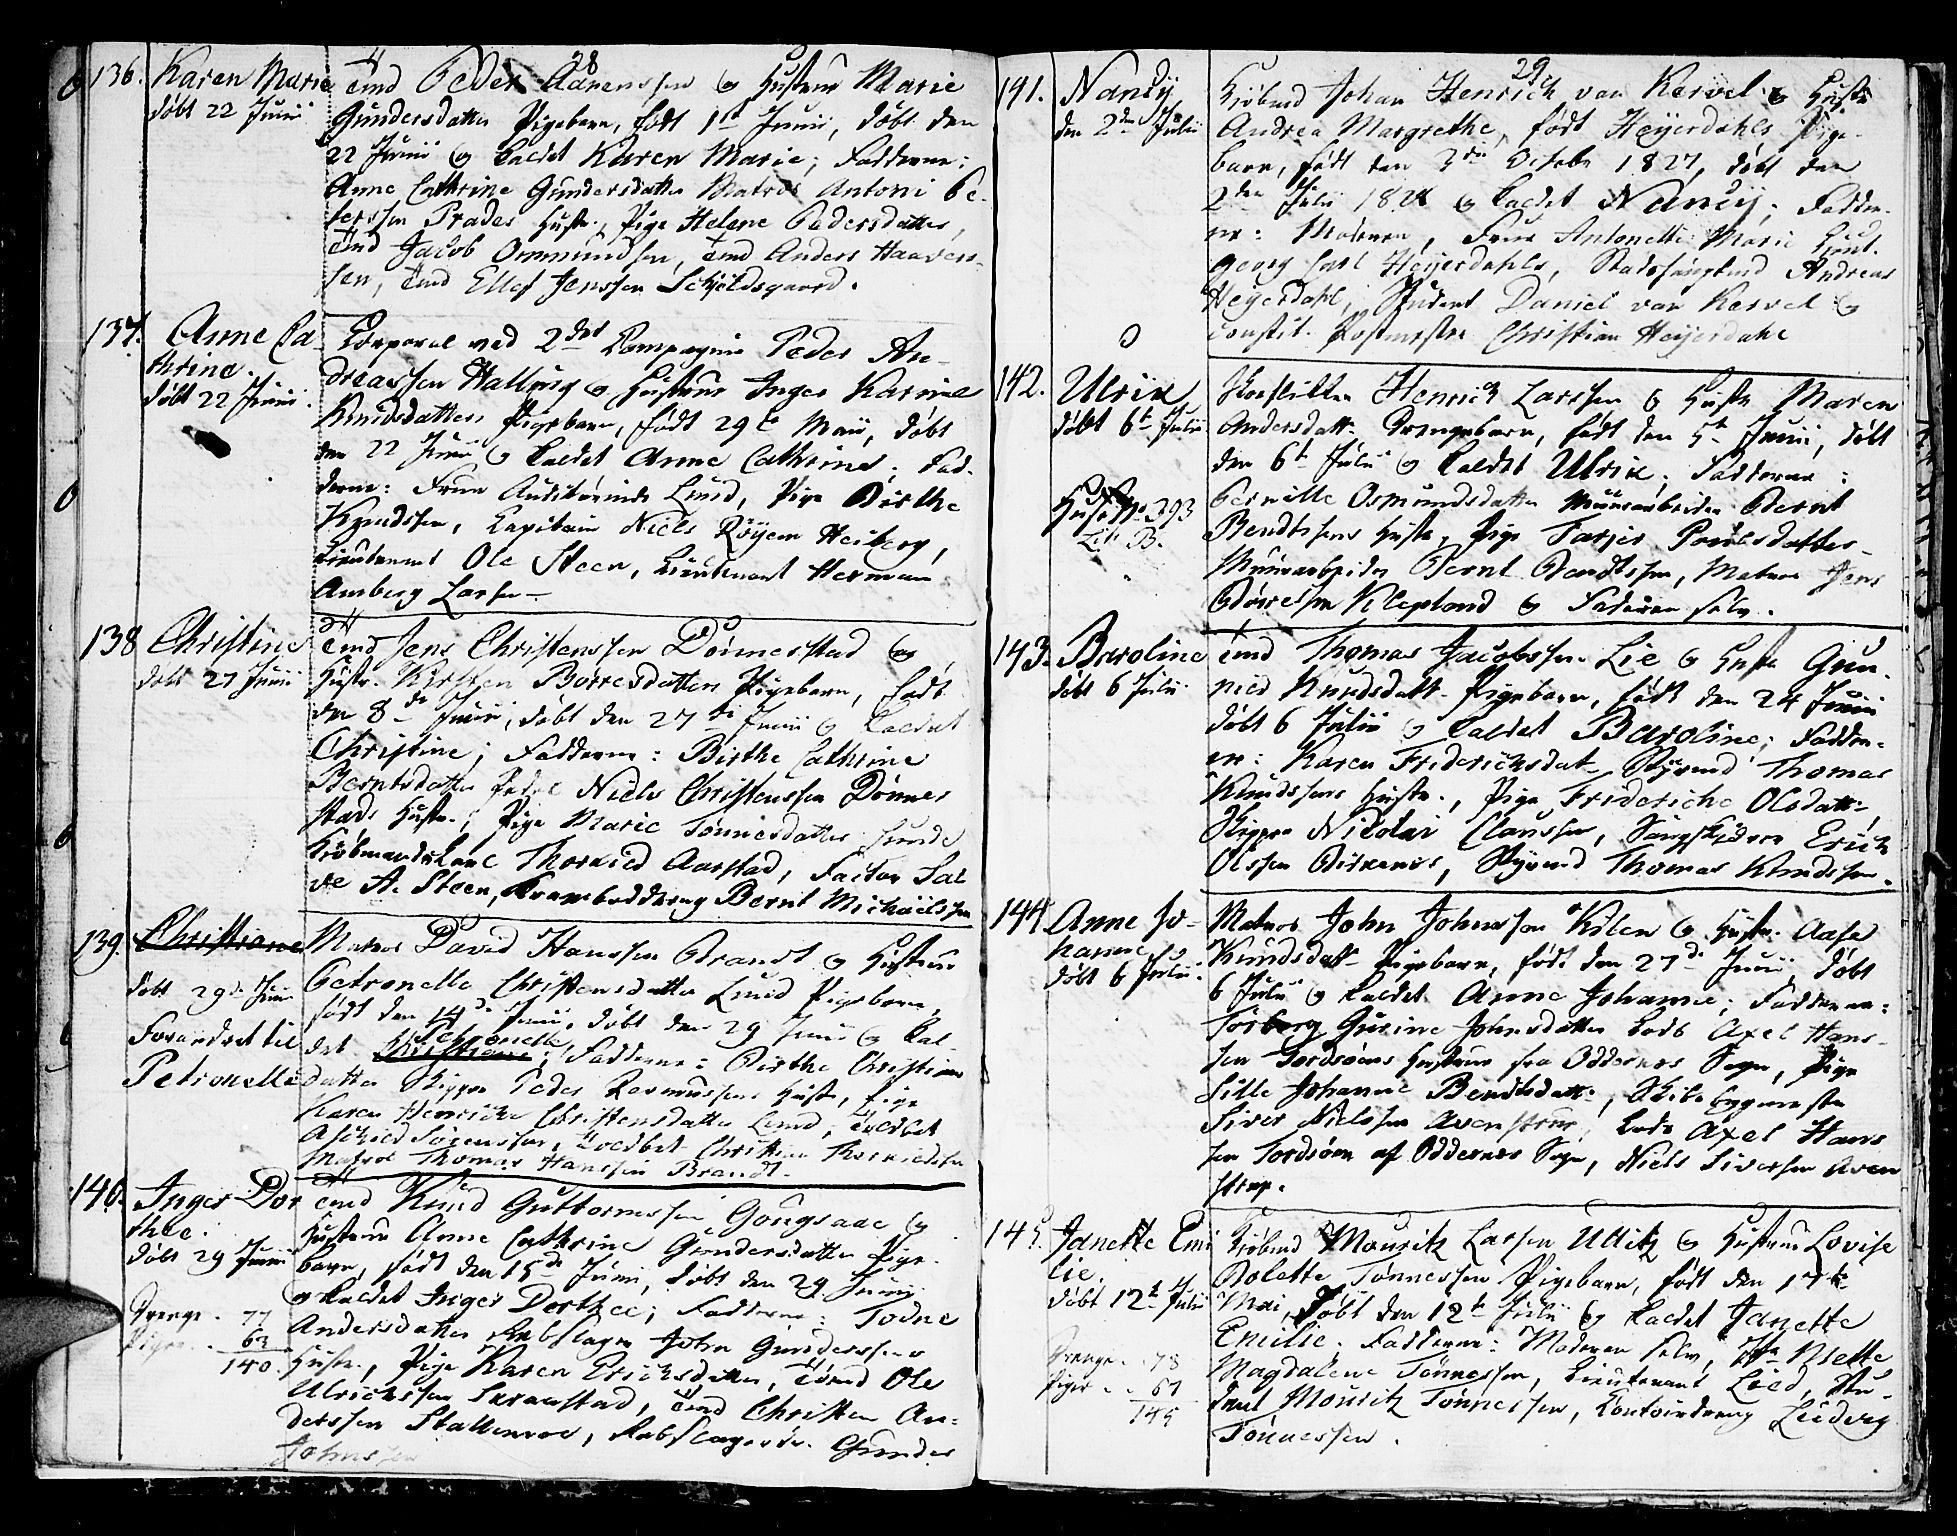 28
136. Karen Marie
døbt 22 Junii
Tmd Peder Aanenssen og Hustrue Marie
Gundersdatter Pigebarn, født 1te Junii, døbt den
22 Junii og kaldet Karen Marie; Fadderne:
Anne Cathrine Gundersdatter Matros Antoni Pe-
derssen Prades Hustr., Pige Helene Pedersdatter,
Tmd Jacob Ommundsen, Tmd Anders Haavers-
sen, Tmd Ellef Jenssen Schjeldsgaard.
137. Anne Ca-
thrine.
døbt 22 Junii.
Corporal ved 2det Compagnie Peder An-
dreassen Halling og Hustrue Inger Karine
Knudsdatters Pigebarn, født 29te Maii, døbt
den 22 Junii og kaldet Anne Cathrine; Fad-
derne: Frue Auditørinde Lund, Pige Birthe
Knudssen, Capitain Niels Røyem Heiberg,
Lieutenant Ole Steen, Lieutenant Herman
Amberg Larsen
138 Christine
døbt 27 Junii
Tmd Jens Christenssen Dønnestad og
Hustr. Kirsten Børresdatters Pigebarn, født
den 8de Junii, døbt den 27de Junii og kaldet
Christine; Fadderne: Birthe Cathrine
Berntsdatter Niels Christenssen Dønne-
stads Hustr., Pige Marie Tønnesdatter
Kjøbmandskone Thorkild Aarstad, Factor Sal-
ve A. Steen, Kramboddreng Bernt Michaelssen
139. Christiane
døbt 29de Junii
Forandret til
Petronelle
Matros David Hanssen Brandt og Hustrue
Petronelle Christensdatter Lund Pigebarn,
født den 14de Junii, døbt den 29 Junii og kal-
det Christiane Petronelle; Fadderne: Birthe Christians-
datter Skipper Peder Rasmussens Hustr., Pige
Karen Henricke Christensdatter Lund,
Aschild Sørenssen, Christian
Matros Thomas Hanssen Brandt.
140. Inger Dor
thee.
døbt 29 Junii
Drenge. 77
Piger. 63
140.
Tmd Knud Guttormsen Gongsaae og
Hustrue Anne Cathrine Gundersdatter Pige-
barn, født den 15de Junii, døbt den 29 Junii
og kaldet Inger Dorthee; Fadderne: Todne
Andersdatter Rebslager John Gunderssens
Hustr., Pige Karen Ericksdatter, Tømd Ole
Ulrichssen, Tmd Christen An-
derssen Stallemoe, Rebslagersv. Gunder
Johnssen
29
141. Nancy
den 2den Julii
Kjøbmd Johan Henrich van Kervel og Hustr.
Andrea Margrethe, født Heyerdahls Pige-
barn, født den 3die Octobr 1827, døbt den
2den Julii 1828 og kaldet Nancy; Fadder-
ne: Moderen, Frue Antonette Marie
Georg Carl Heyerdahls, Andreas
Heyerdahl, Student Daniel van Kervel og
constit. Postmester Christian Heyerdahl
142. Ulrik
døbt 6te Julii
Huset No 393
Lit. B.
Skoflikker Henrich Larssen og Hustr. Maren
Andersdatt. Drengebarn, født den 5te Junii, døbt
den 6te Julii og kaldet Ulrik; Fadderne:
Pernille Osmundsdatter Muurarbeider Bernt
Bendtssens Hustr., Pige Tarjer Poulsdatter
Muurarbeider Bernt Bendtssen, Matros Jens
Børresen Klepland og Faderen selv.
143. Baroline
døbt 6 Julii
Tmd Thomas Jacobssen Lie og Hustr. Gun-
nild Knudsdatt. Pigebarn, født den 24 Junii
døbt 6 Julii og kaldet Baroline; Fadder-
ne: Karen Friderichsdat. Styrmd Thomas
Knudssens Hustr., Pige Frideriche Olsdatt.,
Skipper Nicolai Clausen, Erich
Olssen Birkenes, Styrmd Thomas Knudssen.
144. Anne Jo-
hanne
døbt 6 Julii.
Matros John Johnssen Kilen og Hustr. Aase
Knudsdatt. Pigebarn, født den 27de Junii, døbt
6 Julii og kaldet Anne Johanne; Fadderne:
Torborg Gurine Johnsdatter Lods Axel Hans-
sen Tordsøens Hustrue fra Oddernes Sogn, Pige
Sille Johanne Bendtsdatt., Skibsbygmester
Siver Nielsen Avenstrup, Lods Axel Hans
sen Tordsøen af Oddernes Sogn, Niels Siversen Aven
strup.
145. Janette Emi
lie.
døbt 12te Julii
Drenge. 78
Piger. 67
145
Kjøbmd Mouritz Larsen Ullitz og Hustrue Lovise
Bolette Tønnessen Pigebarn, født den 17de
Mai, døbt den 12te Julii og kaldet Janette
Emilie. Fadderne: Moderen selv, Mette
Magdalene Tønnessen, Lieutenant Lied, Stu-
dent Mouritz Tønnessen, Contoirdreng Ludvig
Tønnessen.